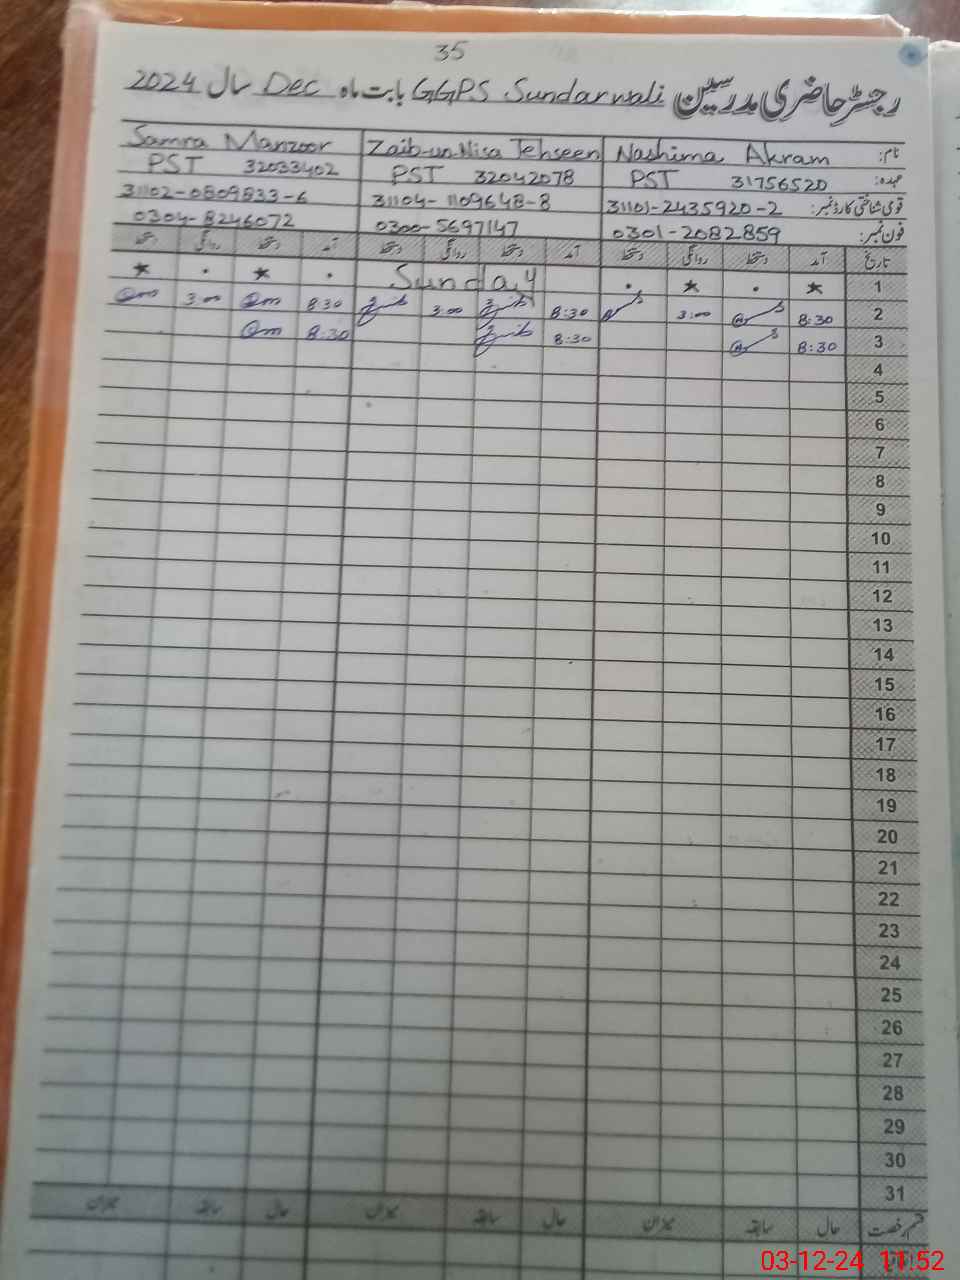 35
رجسٹر حاضری مدرسین GGPS Sundarwali بابت ماہ Dec سال 2024
نام: Nashima Akram Zaib-un-Nisa Tehseen Samra Manzoor
عہدہ: PST 31756520 PST 32042078 PST 32033402
قومی شناختی کارڈ نمبر: 31101-2435920-2 31104-1109648-8 31102-0809833-6
فون نمبر: 0301-2082859 0300-5697147 0304-8246072
تاریخ آمد دستخط روانگی دستخط آمد دستخط روانگی دستخط آمد دستخط روانگی دستخط
1 ★ • ★ • Sunday • ★ • ★
2 8:30 3:00 8:30 3:00 8:30 3:00
3 8:30 8:30 8:30
4
5
6
7
8
9
10
11
12
13
14
15
16
17
18
19
20
21
22
23
24
25
26
27
28
29
30
31
قسم رخصت حال سابقہ میزان حال سابقہ میزان حال سابقہ میزان
03-12-24 11:52